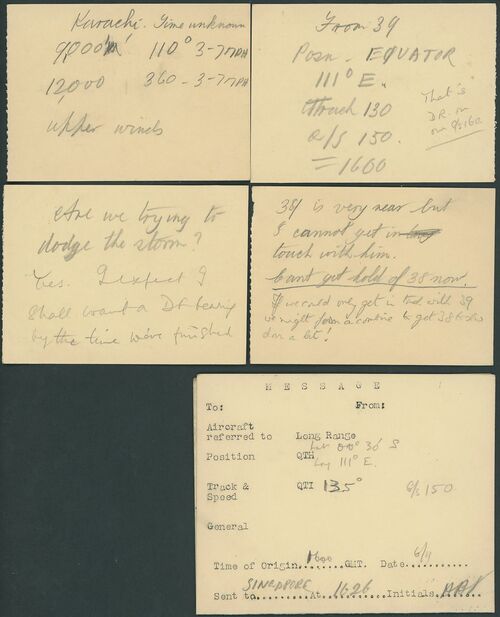 Karachi. Time unknown
9,000' 110° 3-7 MPH
12,000 360 - 3-7 MPH
upper winds
From 39
Posn. EQUATOR
111° E.
Track 130
G/S 150.
= 1600
That is
D.R. on
our G/S 160
Are we trying to
dodge the storm?
Yes. I expect I
shall want a DF bearing
by the time we've finished
39 is very near but
I cannot get in
touch with him.
Cant get hold of 38 now.
If we could only get in touch with 39
we might form a combine to get 38 to slow
down a bit!
MESSAGE
To: From:
Aircraft
referred to Long Range
Position QTH Lat 00° 30' S
Long 111° E.
Track &
Speed QTI 135° G/S 150
General
Time of Origin 1600 GMT. Date 6/11
Sent to SINGAPORE At 1626 Initials